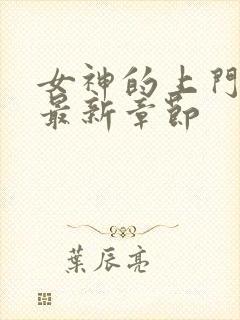 女神的上門
最新章節
葉辰亮